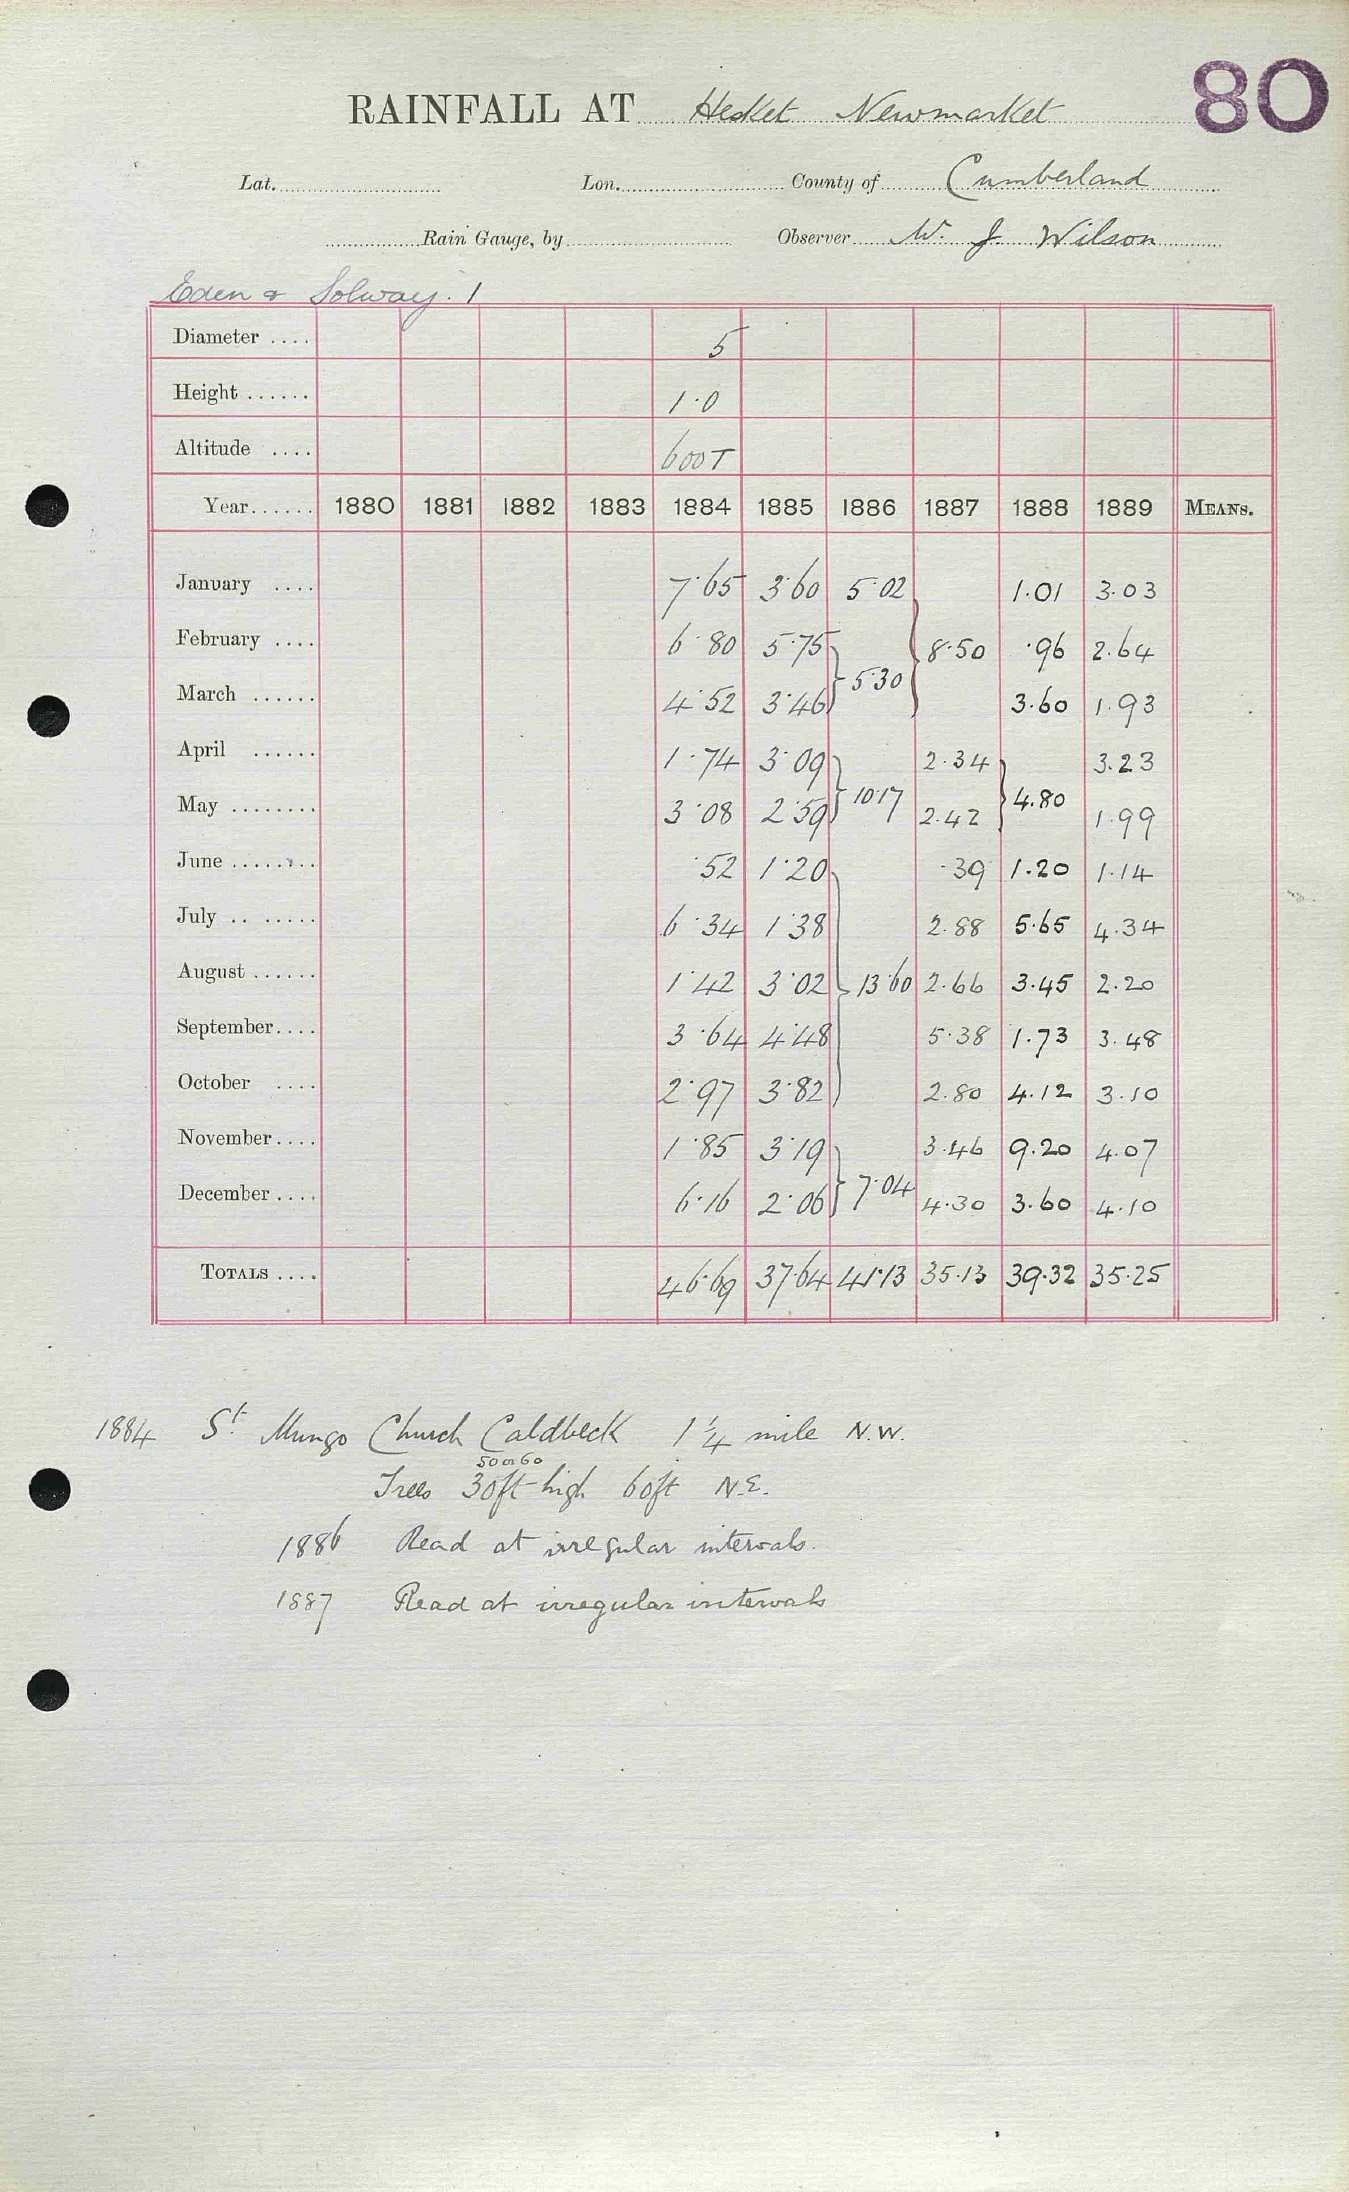 80
RAINFALL AT Hesket Newmarket
Lat. Lon. County of Cumberland
Rain Gauge, by Observer W. J. Wilson
Eden & Solway. 1
Diameter .... 5
Height ...... 1·0
Altitude .... 600T
Year...... 1880 1881 1882 1883 1884 1885 1886 1887 1888 1889 MEANS.
January .... 7·65 3·60 5·02 1.01 3.03
February .... 6·80 5·75 8·50 ·96 2.64
March ...... 4·52 3·46 5·30 3.60 1.93
April ...... 1·74 3·09 2·34 3.23
May ........ 3·08 2·59 10·17 2.42 4.80 1.99
June ........ ·52 1·20 ·39 1.20 1.14
July .. ..... 6·34 1·38 2.88 5.65 4.34
August ...... 1·42 3·02 13·60 2.66 3.45 2.20
September.... 3·64 4·48 5·38 1.73 3.48
October .... 2·97 3·82 2.80 4.12 3.10
November.... 1·85 3·19 3·46 9.20 4.07
December .... 6·16 2·06 7·04 4·30 3.60 4.10
TOTALS .... 46·69 37·64 41·13 35·13 39·32 35·25
1884 St. Mungo Church Caldbeck 1 1/4 mile N.W.
50 or 60
Trees 30ft high 60ft N.E.
1886 Read at irregular intervals.
1887 Read at irregular intervals